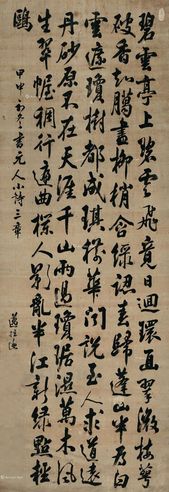 碧雲亭上碧雲飛竟日迴環直翠微梅萼
破香知臘盡柳梢含綠認春歸蓬山半為白
雲遮瓊樹都成琪樹華聞說至人求道遠
丹砂原不在天涯千山雨過瓊琚濕萬木風
生翠幄稠行遍曲欄人影亂半江新綠點輕
鷗
甲申初冬書元人小詩三章